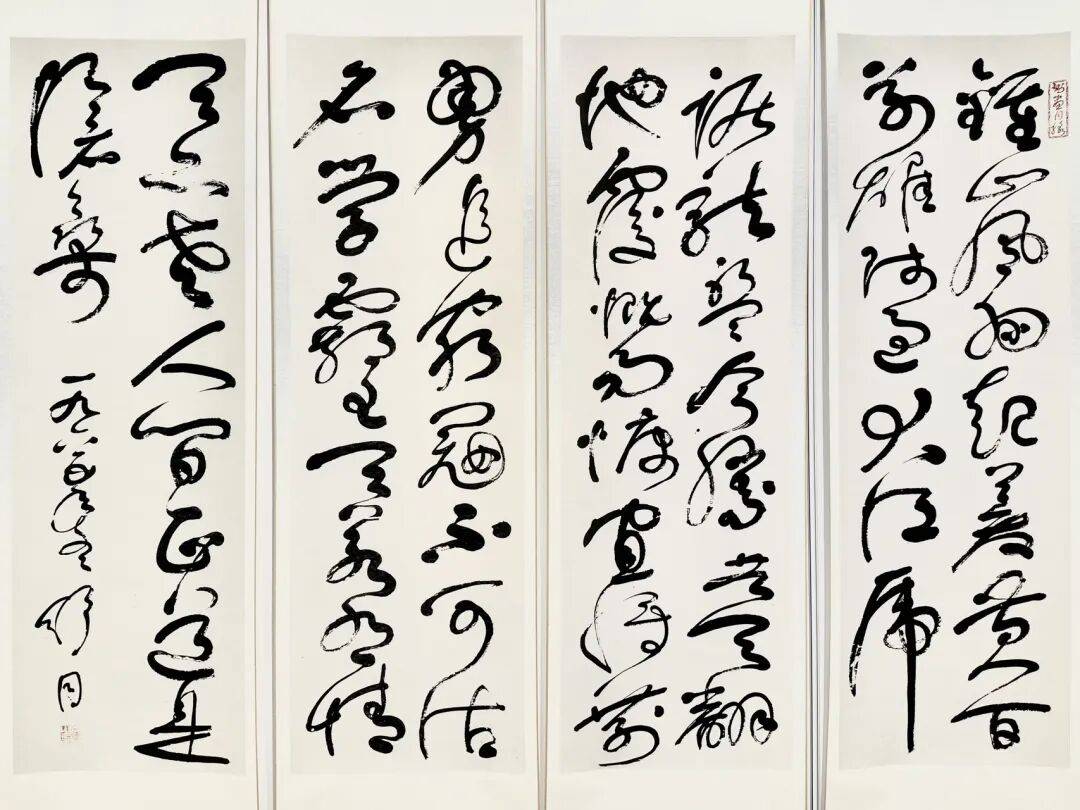 鍾山風雨起蒼黄百
萬雄师过大江虎
踞龍盤今勝昔天翻
地覆慨而慷宜将剩
勇追窮寇不可沽
名学霸王天若有情
天亦老人间正道是
滄桑 一九八 年 舒同